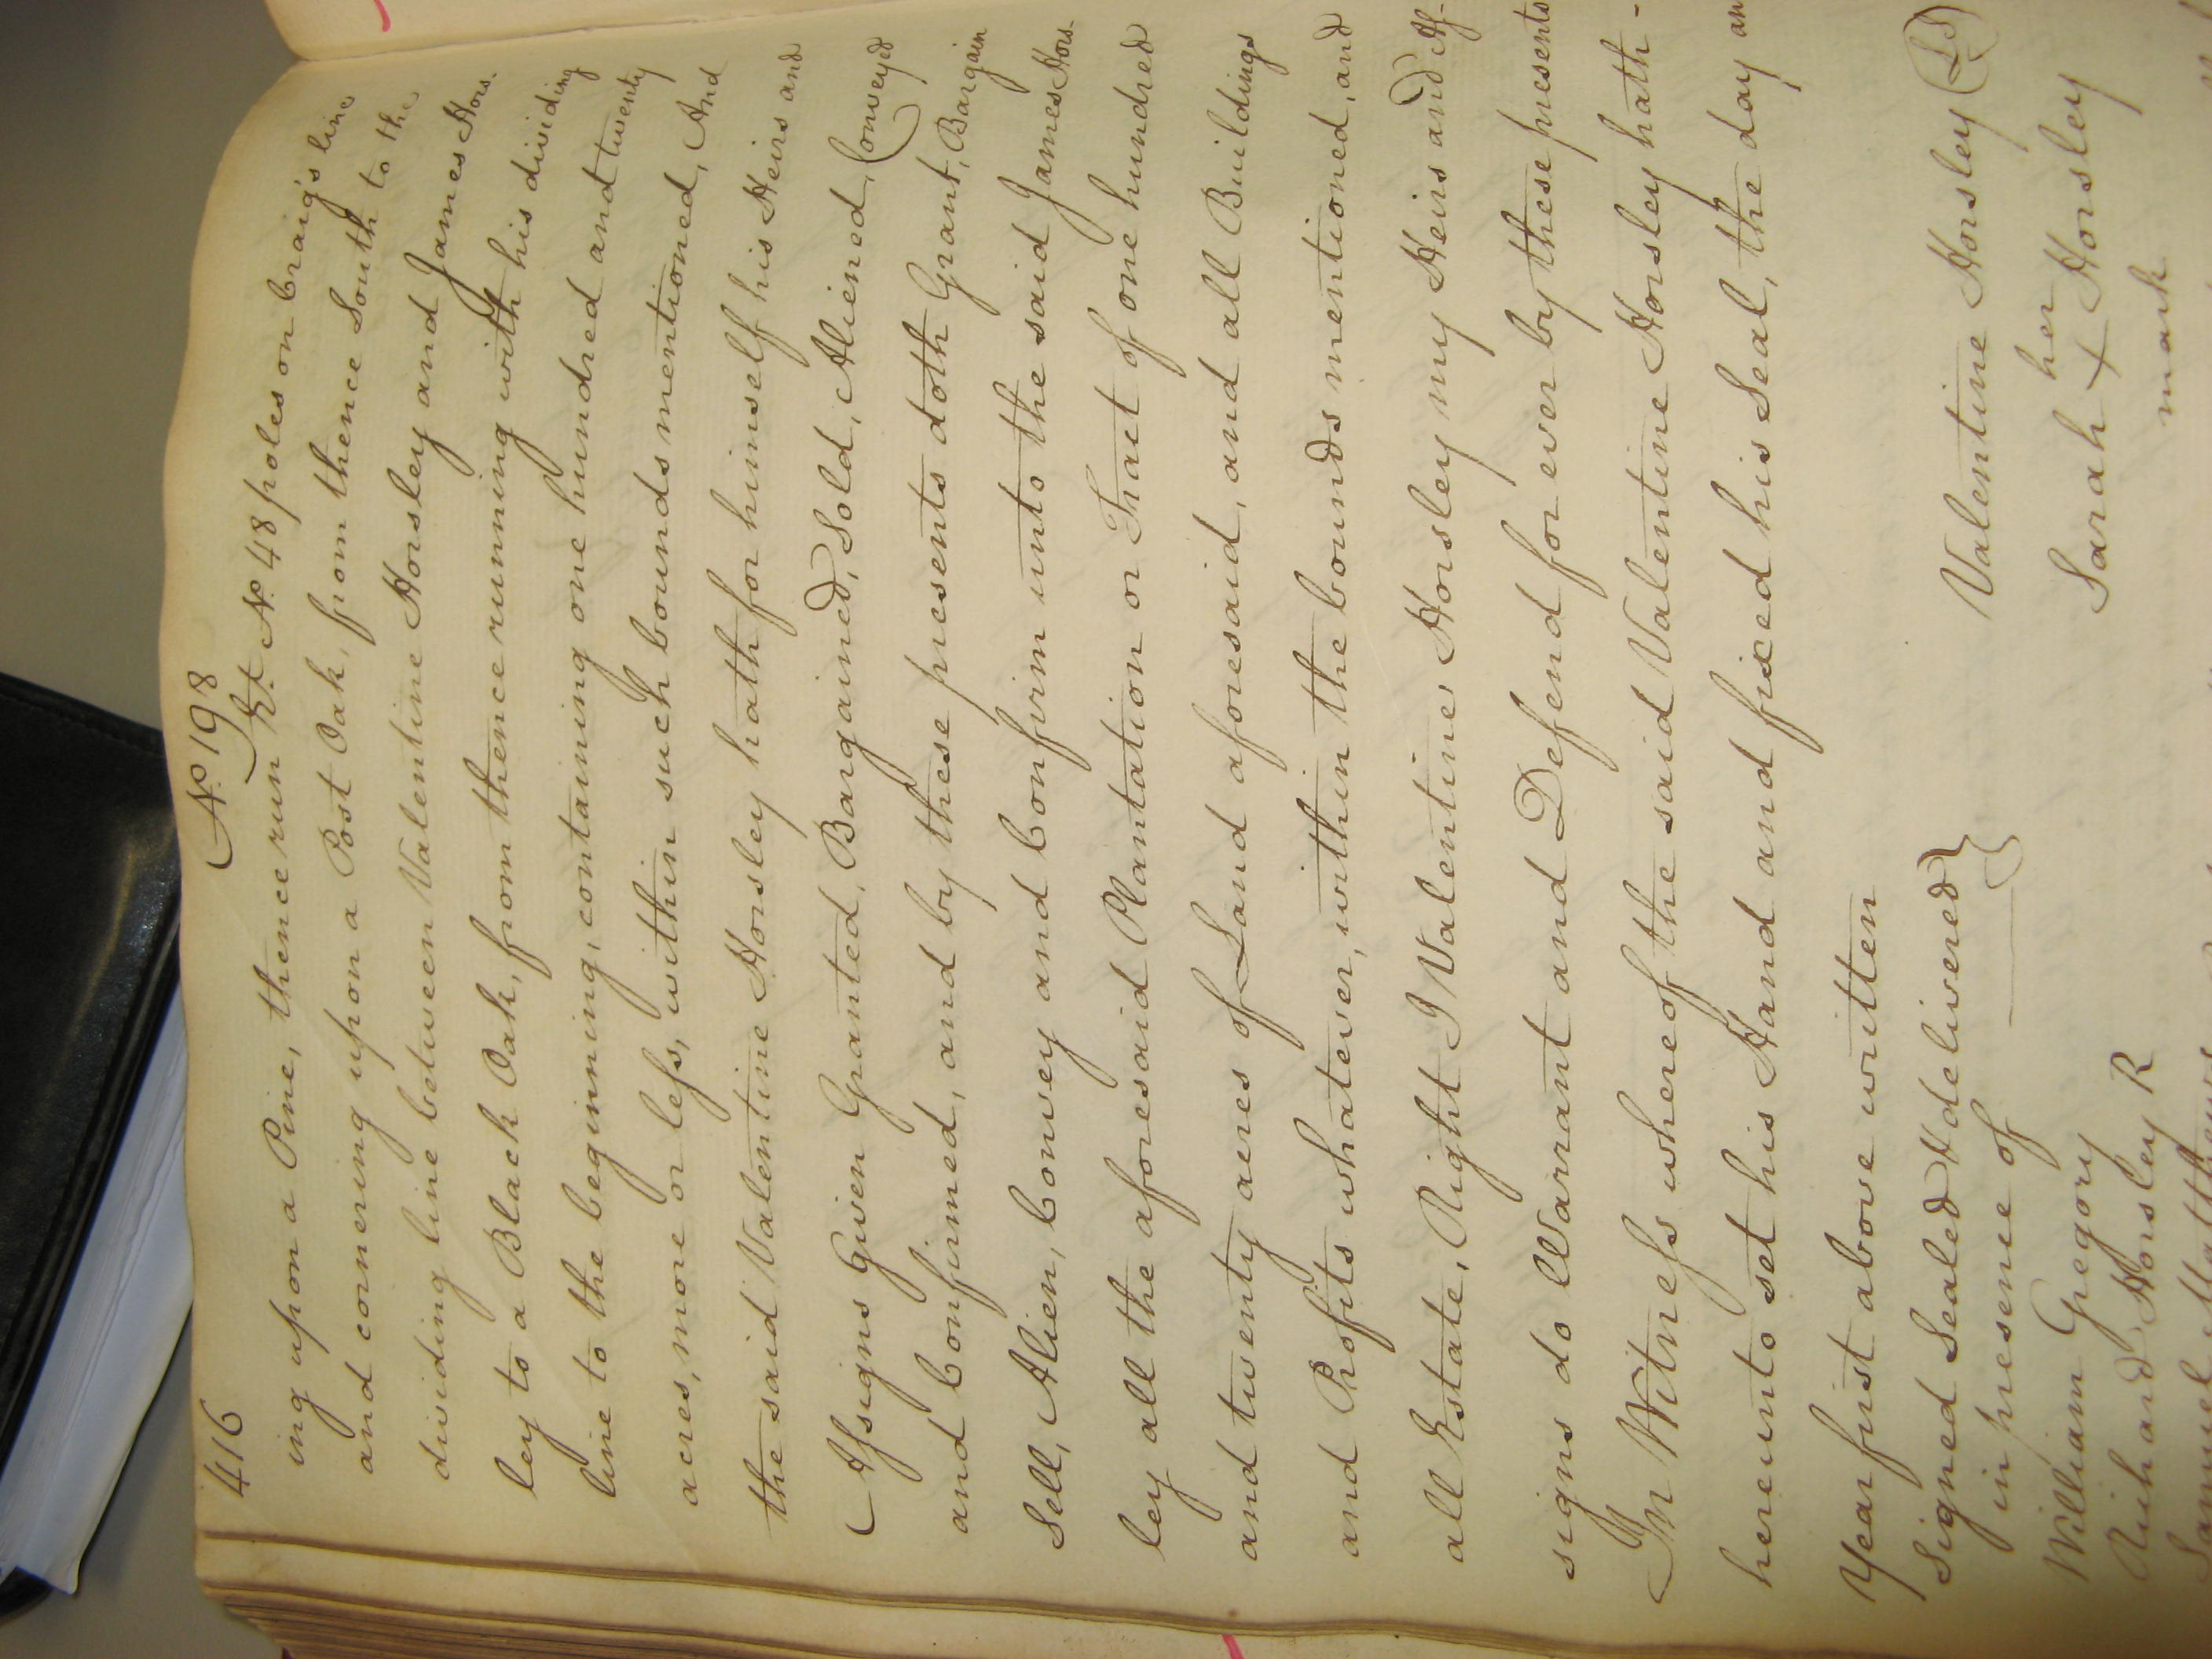 416
No. 198
ing upon a Pine, thence run Et. No. 48 poles on Craig's line
and cornering upon a Post Oak, from thence South to the
dividing line between Valentine Horsley and James Hors-
ley to a Black Oak, from thence running with his dividing
line to the beginning, containing one hundred and twenty
acres, more or less, within such bounds mentioned, And
the said Valentine Horsley hath for himself his Heirs and
Assigns Given Granted, Bargained, Sold, Aliened, Conveyed
and Confirmed, and by these presents doth Grant, Bargain
Sell, Alien, Convey and Confirm unto the said James Hors-
ley all the aforesaid Plantation or Tract of one hundred
and twenty acres of Land aforesaid, and all Buildings
and Profits whatever, within the bounds mentioned, and
all Estate, Right I Valentine Horsley my Heirs and As-
signs do Warrant and Defend for ever by these presents
In Witness whereof the said Valentine Horsley hath -
hereunto set his Hand and fixed his Seal, the day an
Year first above written
Signed Sealed & delivered
in presence of
Valentine Horsley (LS)
her
Sarah X Horsley
mark
William Gregory
Richard Horsley R
Samuel Matthews